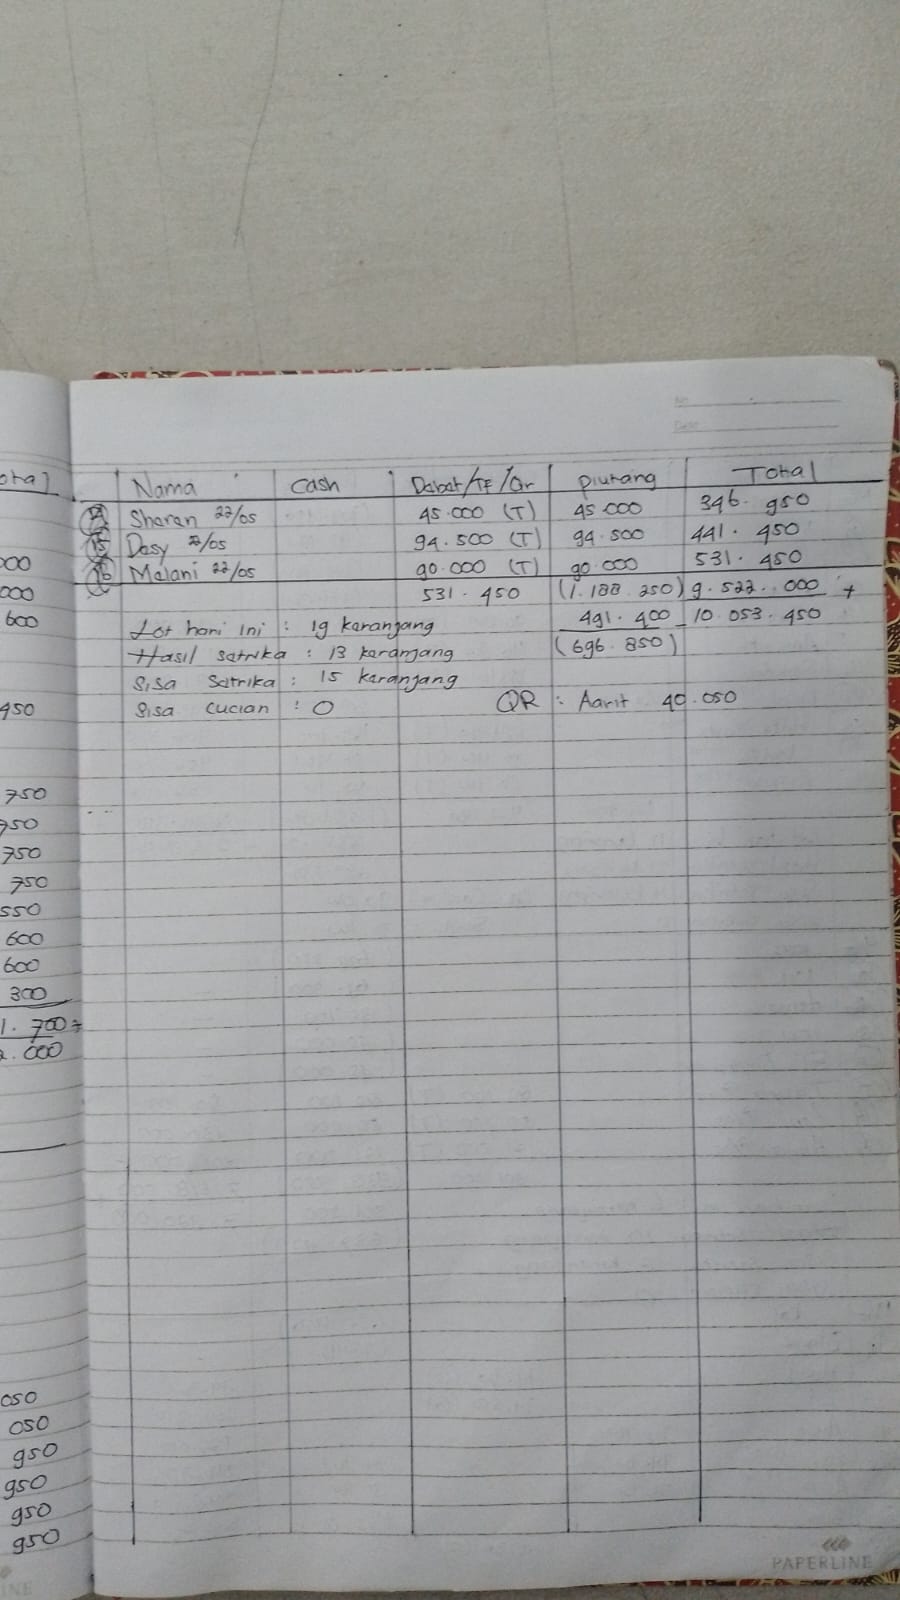 No
Date
otal
Nama Cash Debet/TF/Qr Piutang Total
Sharen 22/05 45.000 (T) 45.000 346.950
15 Desy 22/05 94.500 (T) 94.500 441.450
16 Melani 22/05 90.000 (T) 90.000 531.450
531.450 (1.188.250) 9.522.000 +
Lot hari ini : 19 keranjang 491.400 10.053.450
Hasil setrika : 13 keranjang (696.850)
Sisa Setrika : 15 keranjang
Sisa Cucian : 0 QR : Aarit 40.050
000
000
600
450
750
750
750
750
550
600
600
300
1.700 +
2.000
050
050
950
950
950
950
PAPERLINE
INE